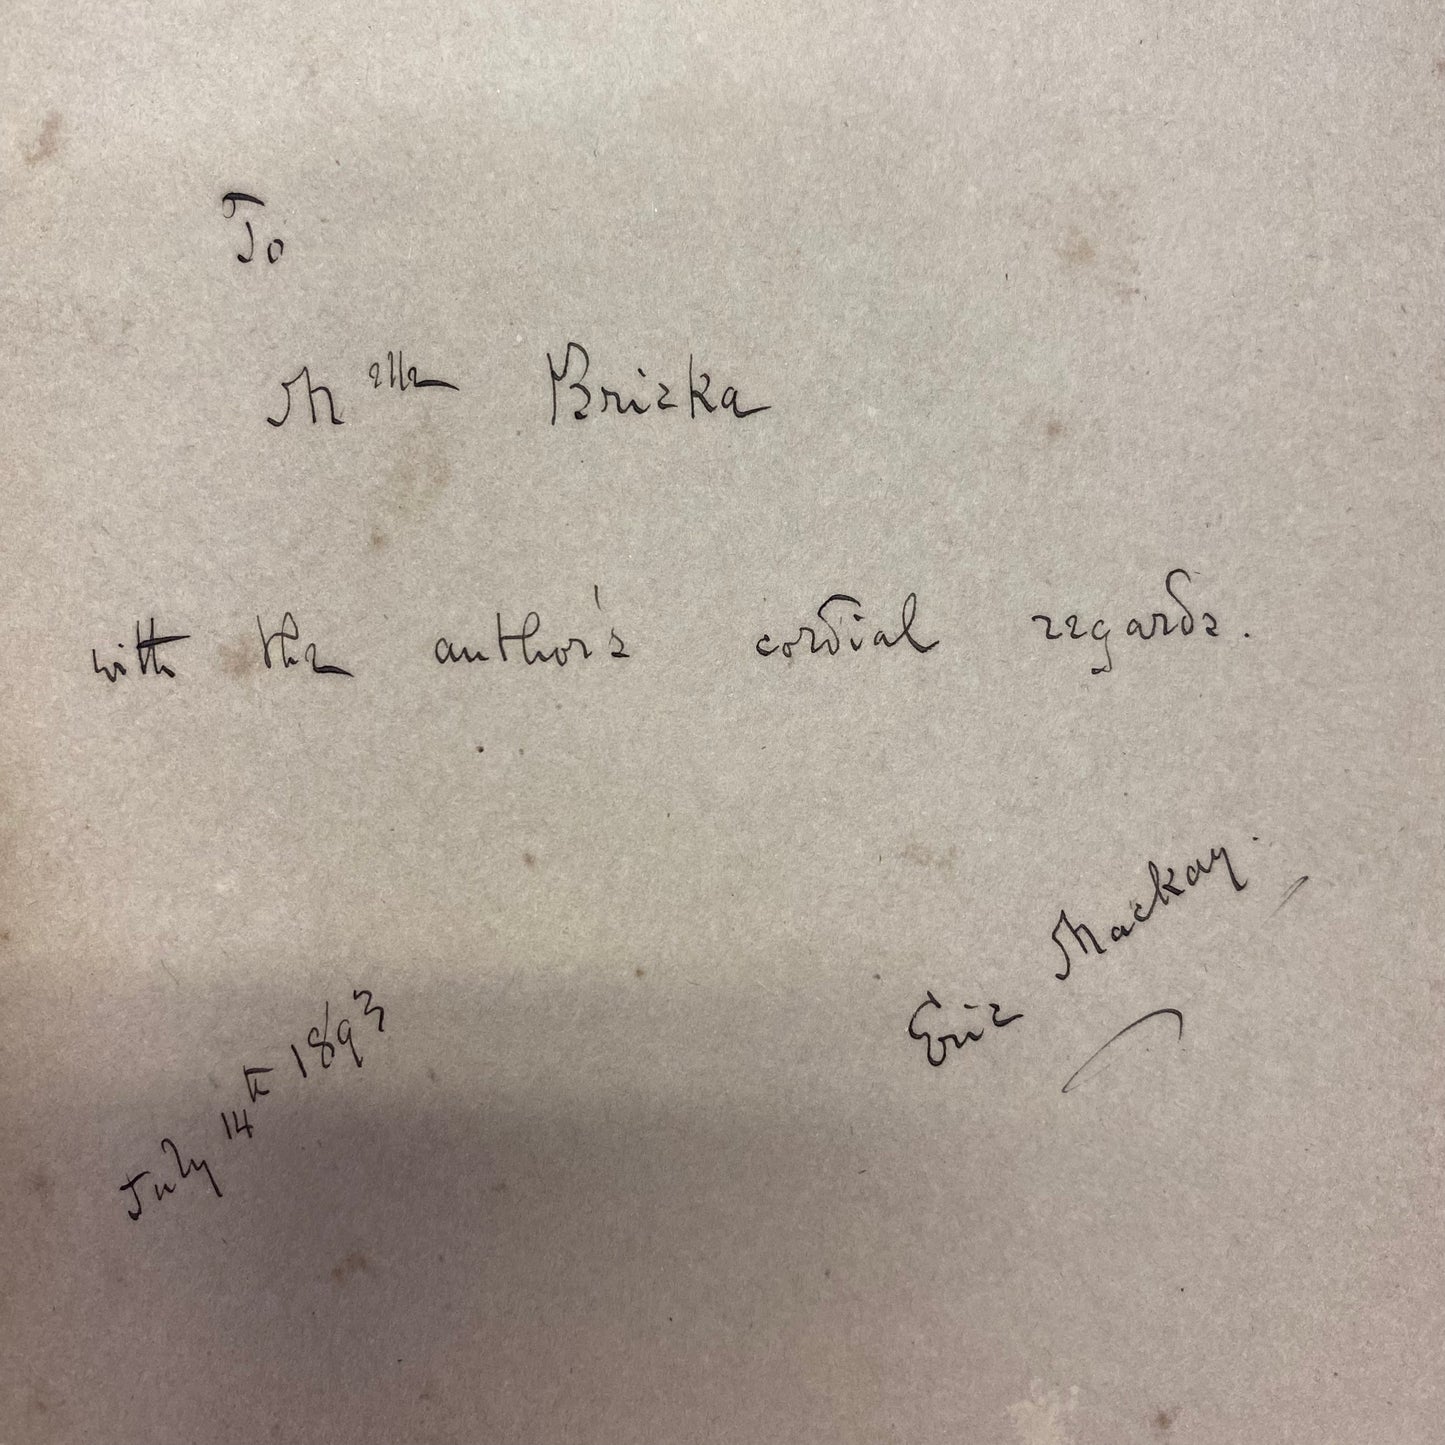 To
Melle Bricka
with the author's cordial regards.
Eric Mackay.
July 14th 1893